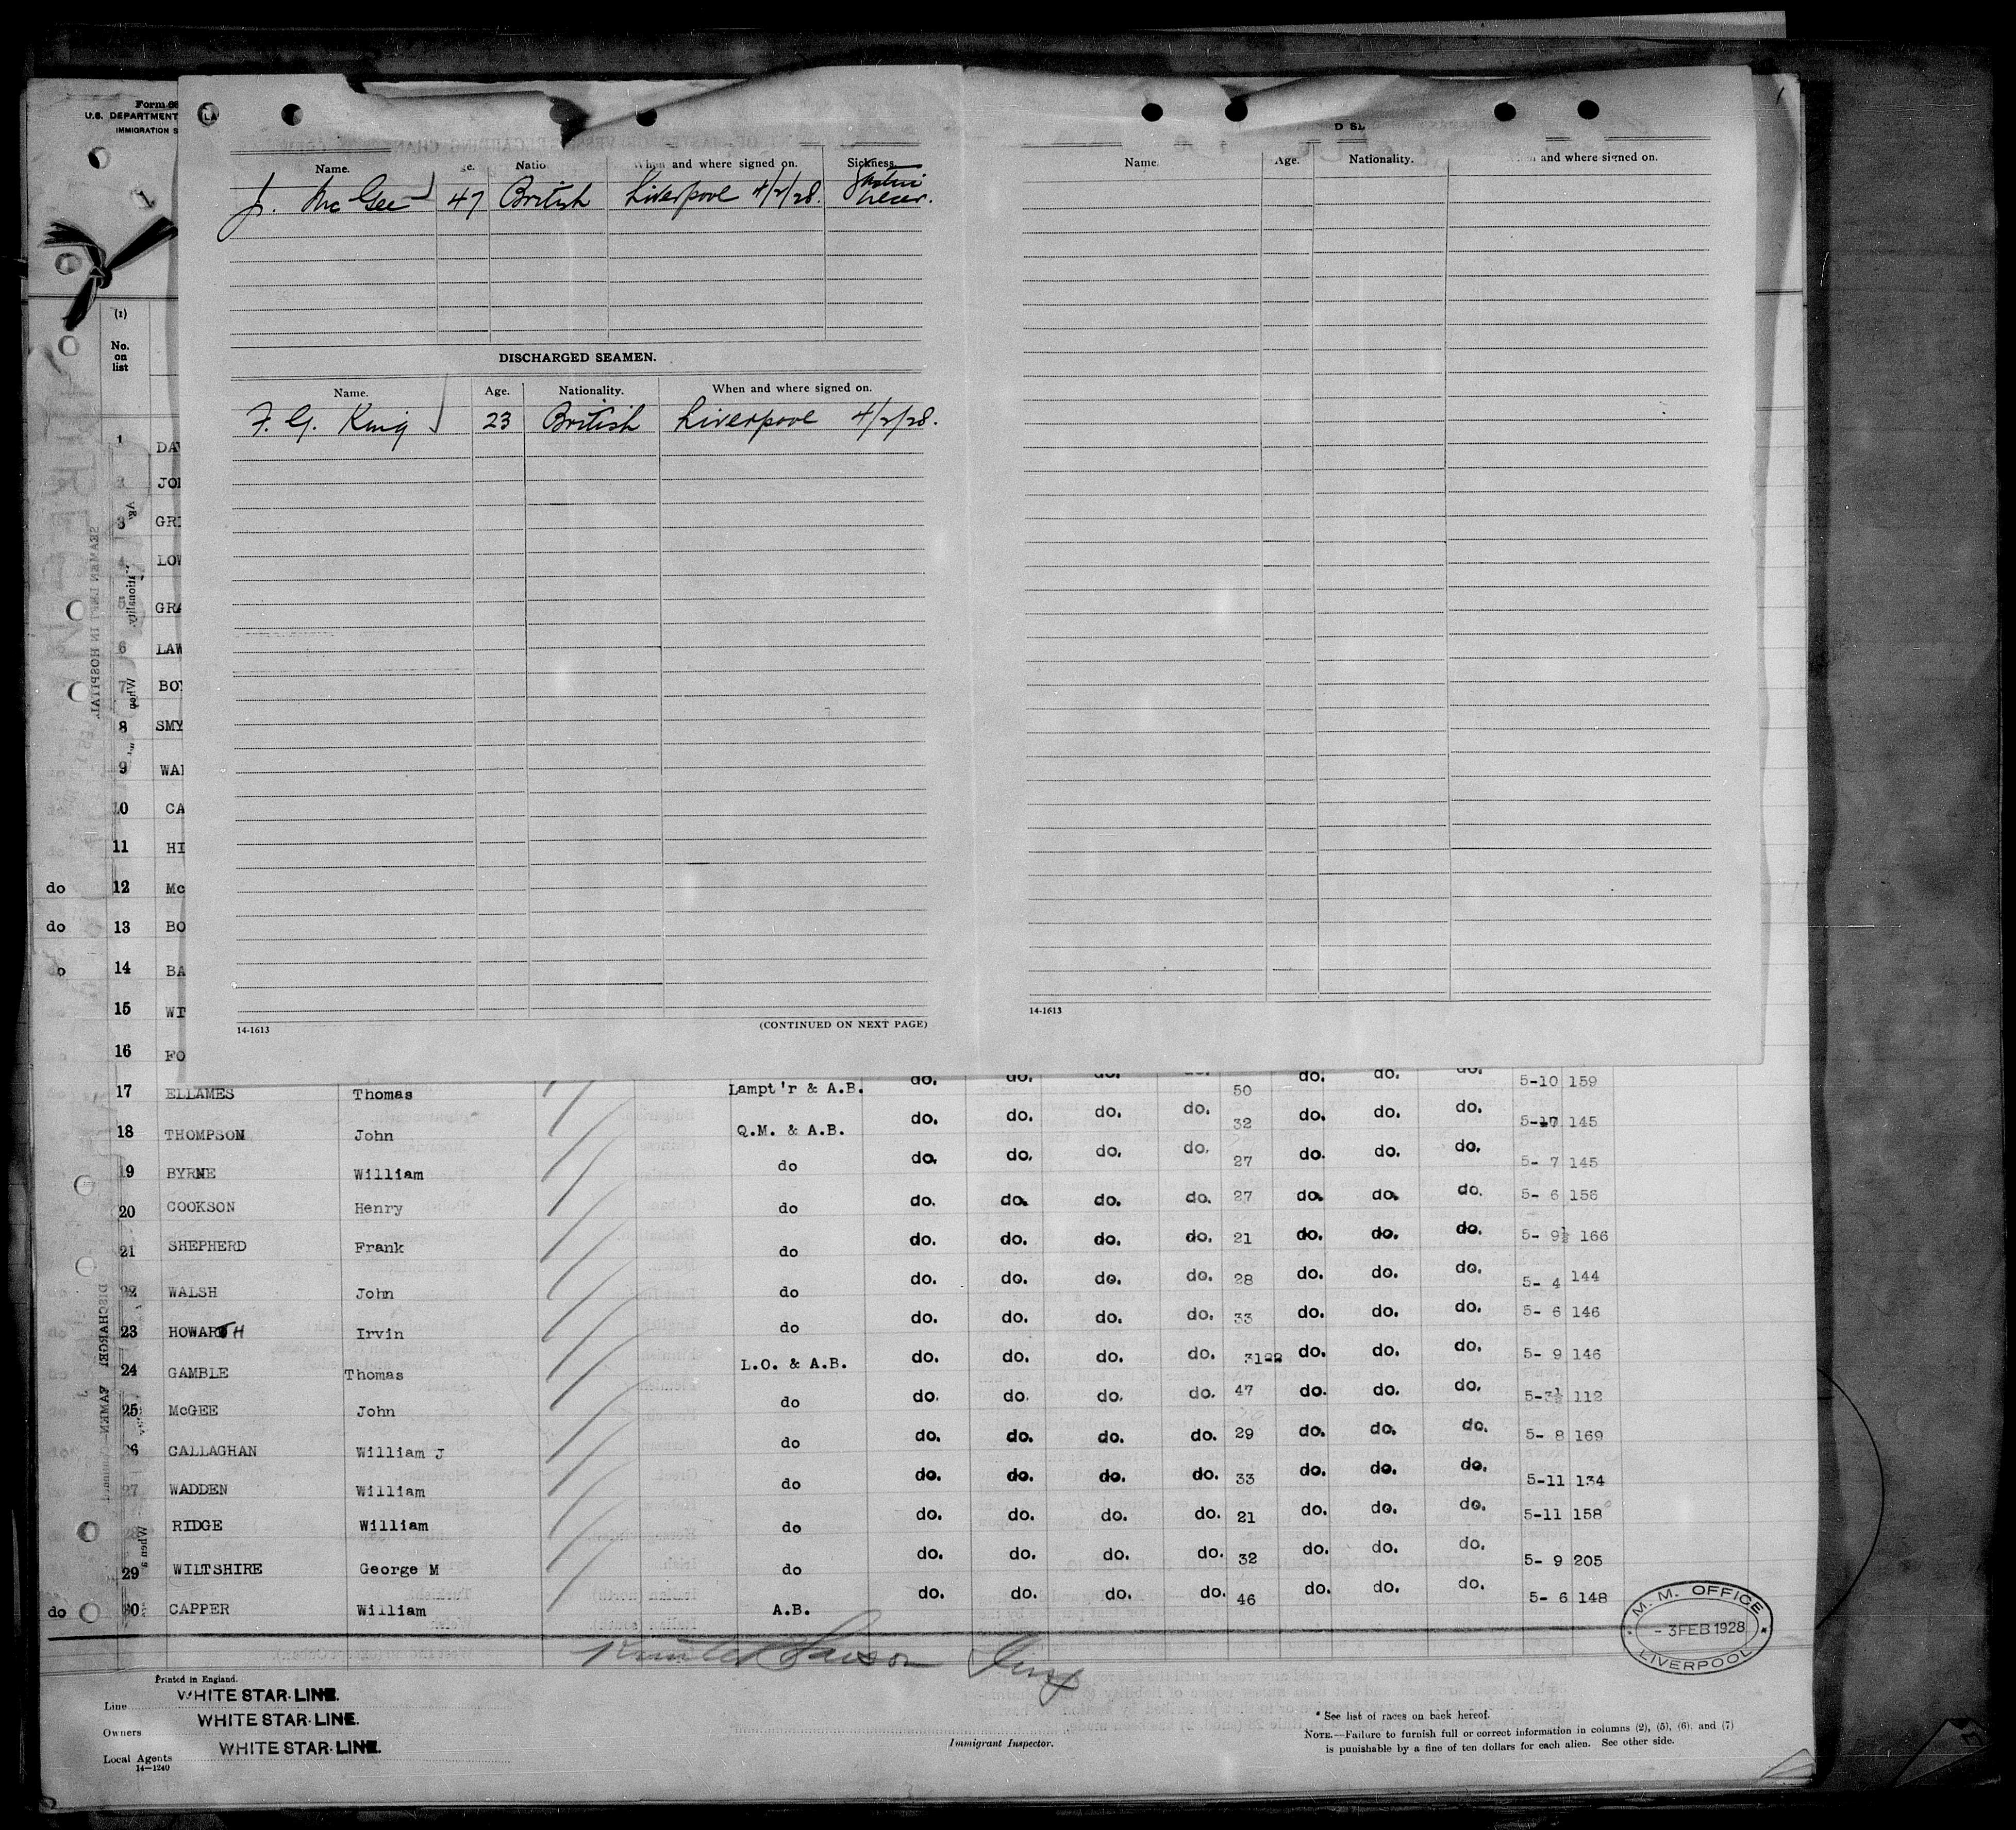 Form
U.S. DEPARTMENT
IMMIGRATION S
LA
D SL
Name. Natio and where signed on. Sickness.
J. McGee 47 British Liverpool 4/2/28. Gastric ulcer.
DISCHARGED SEAMEN.
Name. Age. Nationality. When and where signed on.
F. G. King 23 British Liverpool 4/2/28.
14-1613 (CONTINUED ON NEXT PAGE)
Name. Age. Nationality. and where signed on.
14-1613
(1)
No. on list
1 DA
2 JO
3 GR
4 LOW
5 GRA
6 LAW
7 BO
8 SMY
9 WA
10 CA
11 HI
do 12 Mc
do 13 BO
14 BA
15 WI
16 FO
17 ELLAMES Thomas Lampt'r & A.B. do. do. do. do. 50 do. do. do. 5-10 159
18 THOMPSON John Q.M. & A.B. do. do. do. do. 32 do. do. do. 145
19 BYRNE William do do. do. do. do. 27 do. do. do. 5- 7 145
20 COOKSON Henry do do. do. do. do. 27 do. do. do. 5- 6 156
21 SHEPHERD Frank do do. do. do. do. 21 do. do. do. 5- 9½ 166
22 WALSH John do do. do. do. do. 28 do. do. do. 5- 4 144
23 HOWARTH Irvin do do. do. do. do. 33 do. do. do. 5- 6 146
24 GAMBLE Thomas L.O. & A.B. do. do. do. do. 31 do. do. do. 5- 9 146
25 McGEE John do do. do. do. do. 47 do. do. do. 5-3½ 112
26 CALLAGHAN William J do do. do. do. do. 29 do. do. do. 5- 8 169
27 WADDEN William do do. do. do. do. 33 do. do. do. 5-11 134
28 RIDGE William do do. do. do. do. 21 do. do. do. 5-11 158
29 WILTSHIRE George M do do. do. do. do. 32 do. do. do. 5- 9 205
do 30 CAPPER William A.B. do. do. do. do. 46 do. do. do. 5- 6 148
M. M. OFFICE
- 3 FEB 1928
LIVERPOOL
Printed in England.
Line WHITE STAR LINE.
Owners WHITE STAR LINE.
Local Agents WHITE STAR LINE.
14—1240
Immigrant Inspector.
* See list of races on back hereof.
NOTE.—Failure to furnish full or correct information in columns (2), (5), (6), and (7)
is punishable by a fine of ten dollars for each alien. See other side.